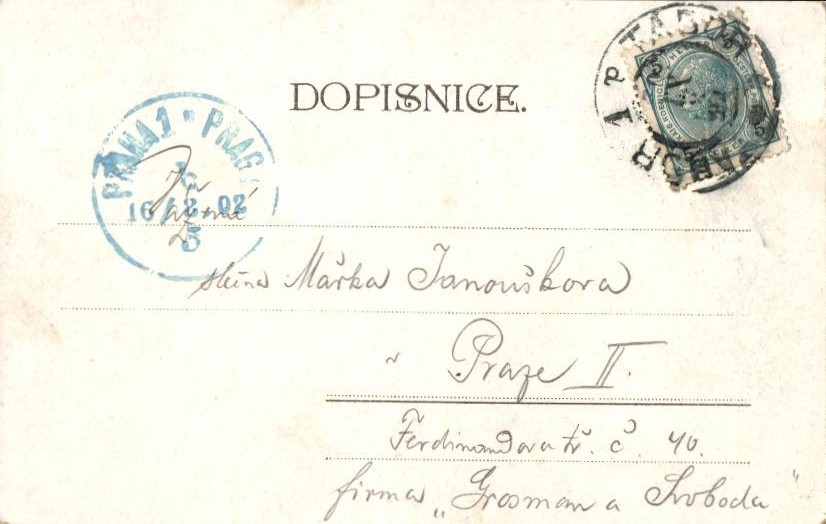 DOPISNICE.
TABOR
TABOR 1
PRAHA 1 * PRAG
16/8 02
5
slečna Mářka Janoušková
v Praze II.
Ferdinandova tř. č. 40.
firma „Grosman a Svoboda"